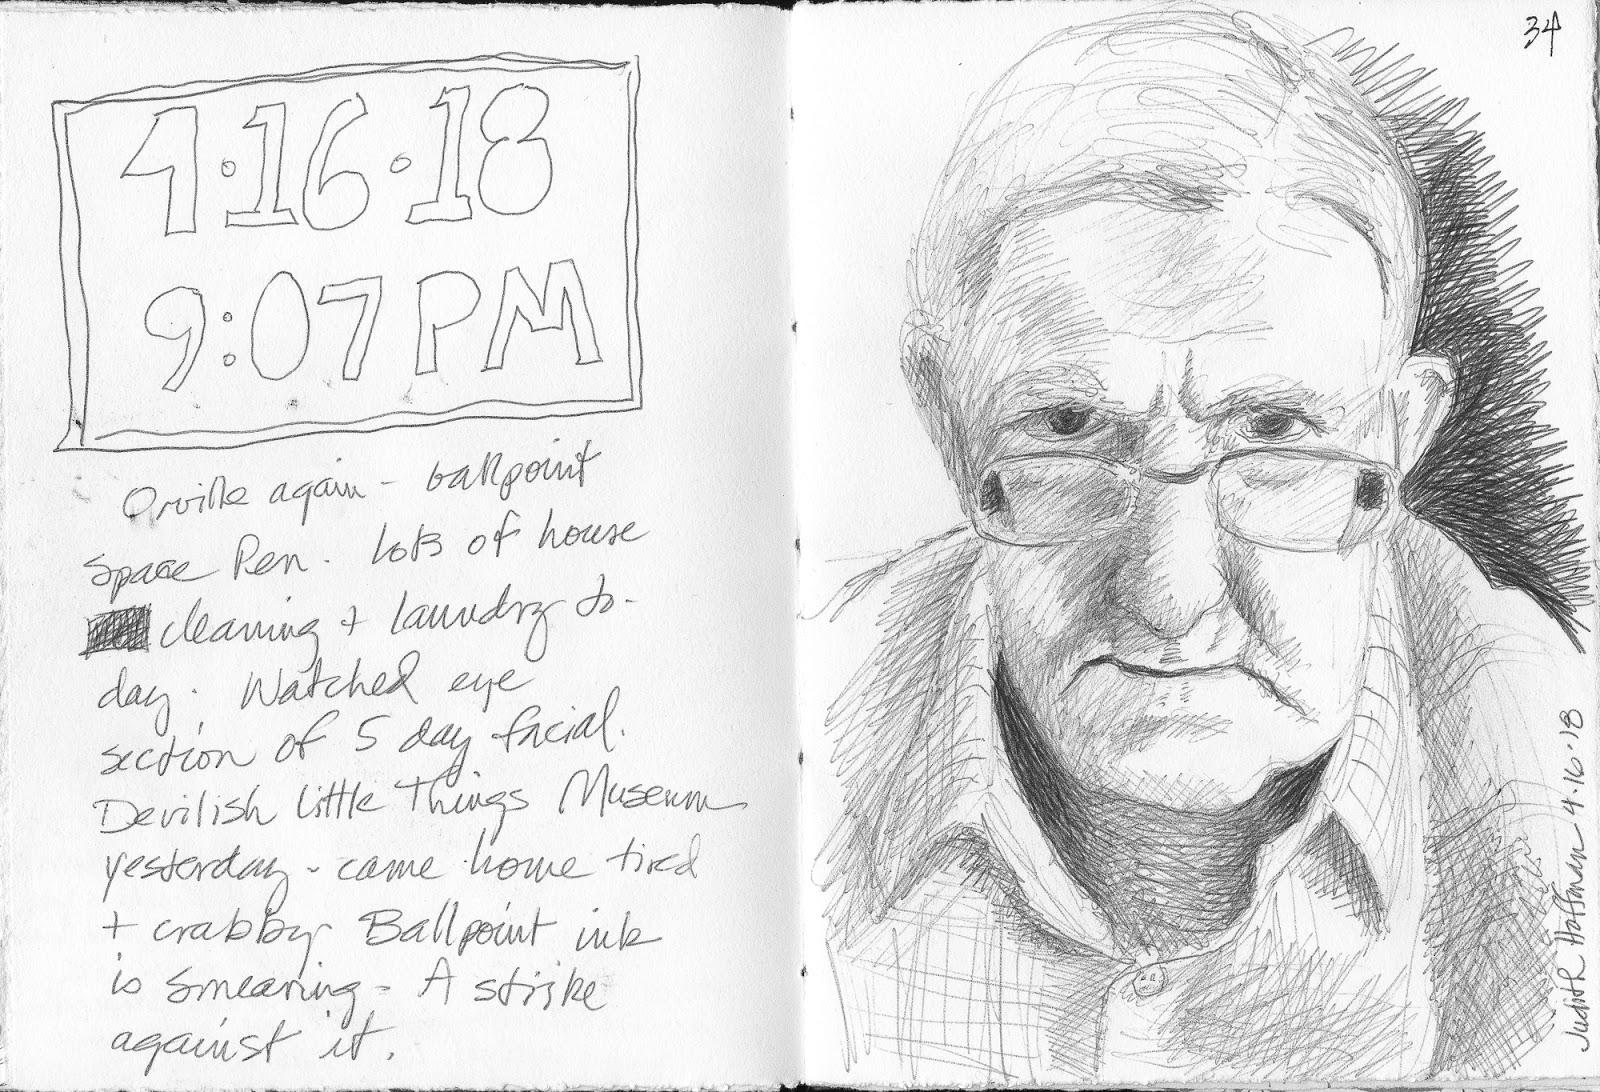 4·16·18
9:07 PM
Orville again - ballpoint
Space Pen. Lots of house
cleaning + laundry to-
day. Watched eye
section of 5 day facial.
Devilish Little Things Museum
yesterday - came home tired
+ crabby. Ballpoint ink
is smearing - A strike
against it.
34
Judith Hoffman 4·16·18